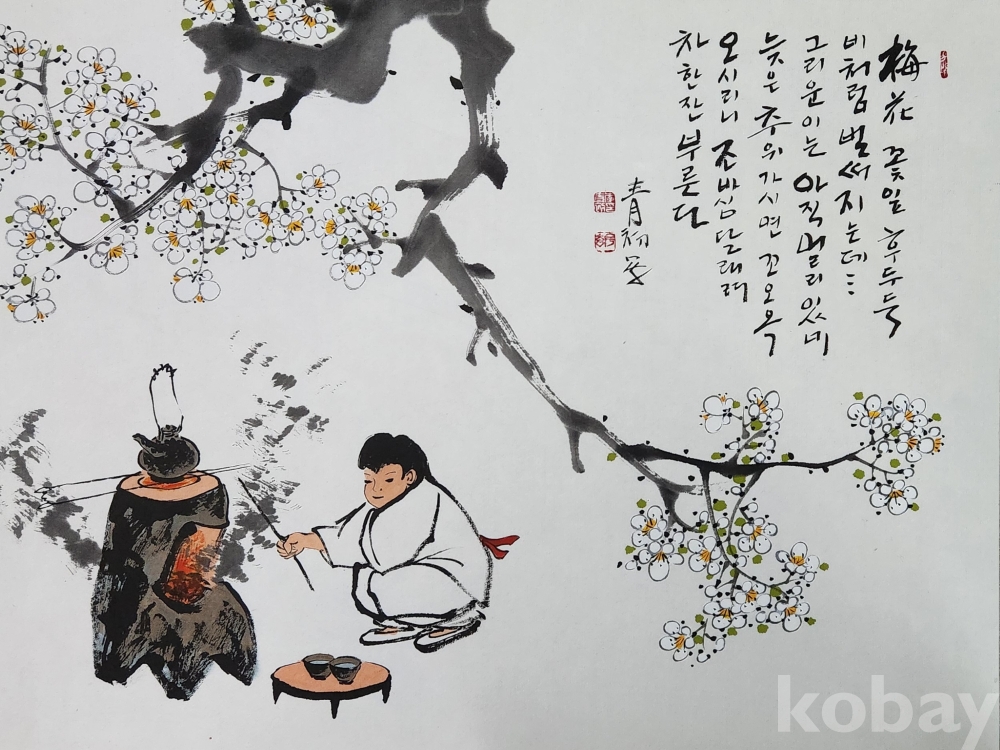 梅花 꽃잎 후두둑
비처럼 벌써 지는데…
그리운 이는 아직 멀리 있네
늦은 추위 가시면 꼬오옥
오시리니 조바심 달래려
차 한잔 부른다
kobay